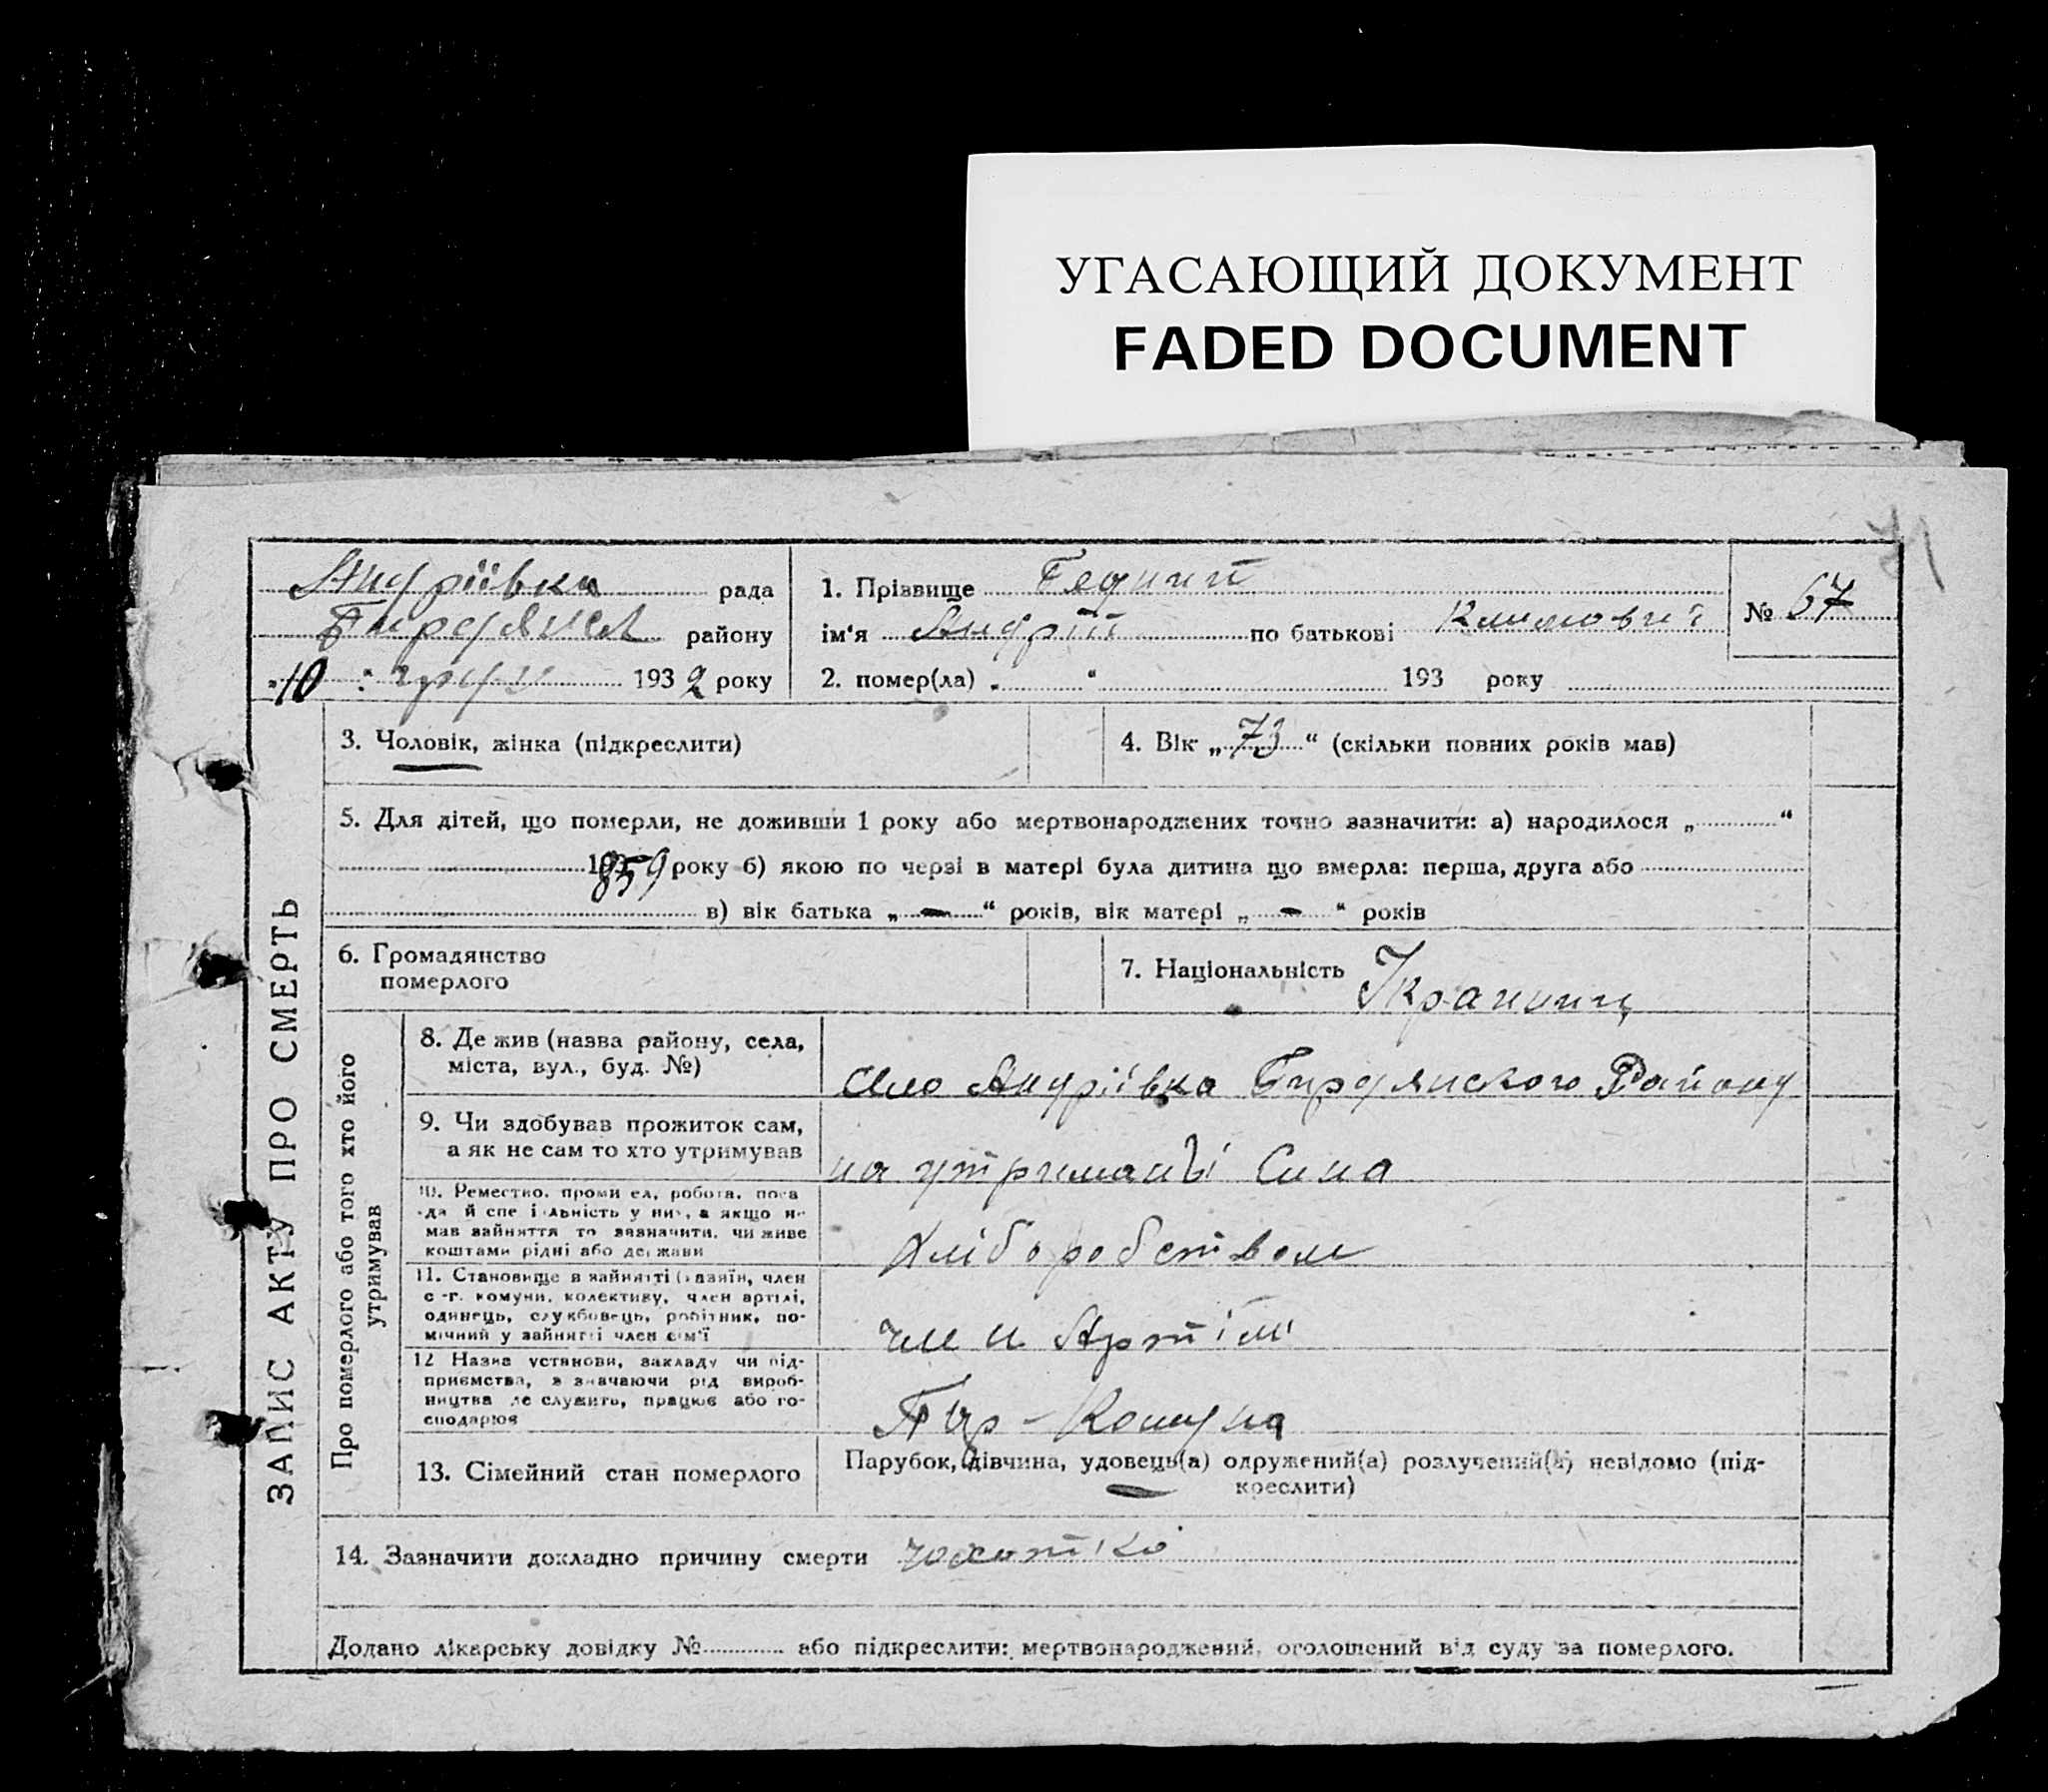 УГАСАЮЩИЙ ДОКУМЕНТ
FADED DOCUMENT
71
Андріївка рада
Бирдянск району
"10" груд 1932 року
1. Прізвище Бедний
ім'я Андрій по батькові Климович
2. помер(ла) „ “ 193 року
№ 67
ЗАПИС АКТУ ПРО СМЕРТЬ
3. Чоловік, жінка (підкреслити)
4. Вік „73“ (скільки повних років мав)
5. Для дітей, що померли, не доживши 1 року або мертвонароджених точно зазначити: а) народилося „ “
1859 року б) якою по черзі в матері була дитина що вмерла: перша, друга або
в) вік батька „ — “ років, вік матері „ — “ років
6. Громадянство
померлого
7. Національність Украинц
Про померлого або того хто його
утримував
8. Де жив (назва району, села,
міста, вул., буд. №)
село Андріівка Бирдянского Району
9. Чи здобував прожиток сам,
а як не сам то хто утримував
на утриманьі Сина
10. Ремество, промисел, робота, поса
да й спеціяльність у ній, а якщо не
мав зайняття то зазначити, чи живе
коштами рідні або держави
Хліборобством
11. Становище в зайнятті (хазяїн, член
с-г. комуни, колективу, член артілі,
одинець, службовець, робітник, по-
мічний у зайнятті член сім'ї
член Артілі
12 Назва установи, закладу чи під-
приємства, зазначаючи рід вироб-
ництва де служить, працює або го-
сподарює
Пар-Комуна
13. Сімейний стан померлого
Парубок, дівчина, удовець(а) одружений(а) розлучений(а) невідомо (під-
креслити)
14. Зазначити докладно причину смерти
Додано лікарську довідку № або підкреслити: мертвонароджений, оголошений від суду за померлого.